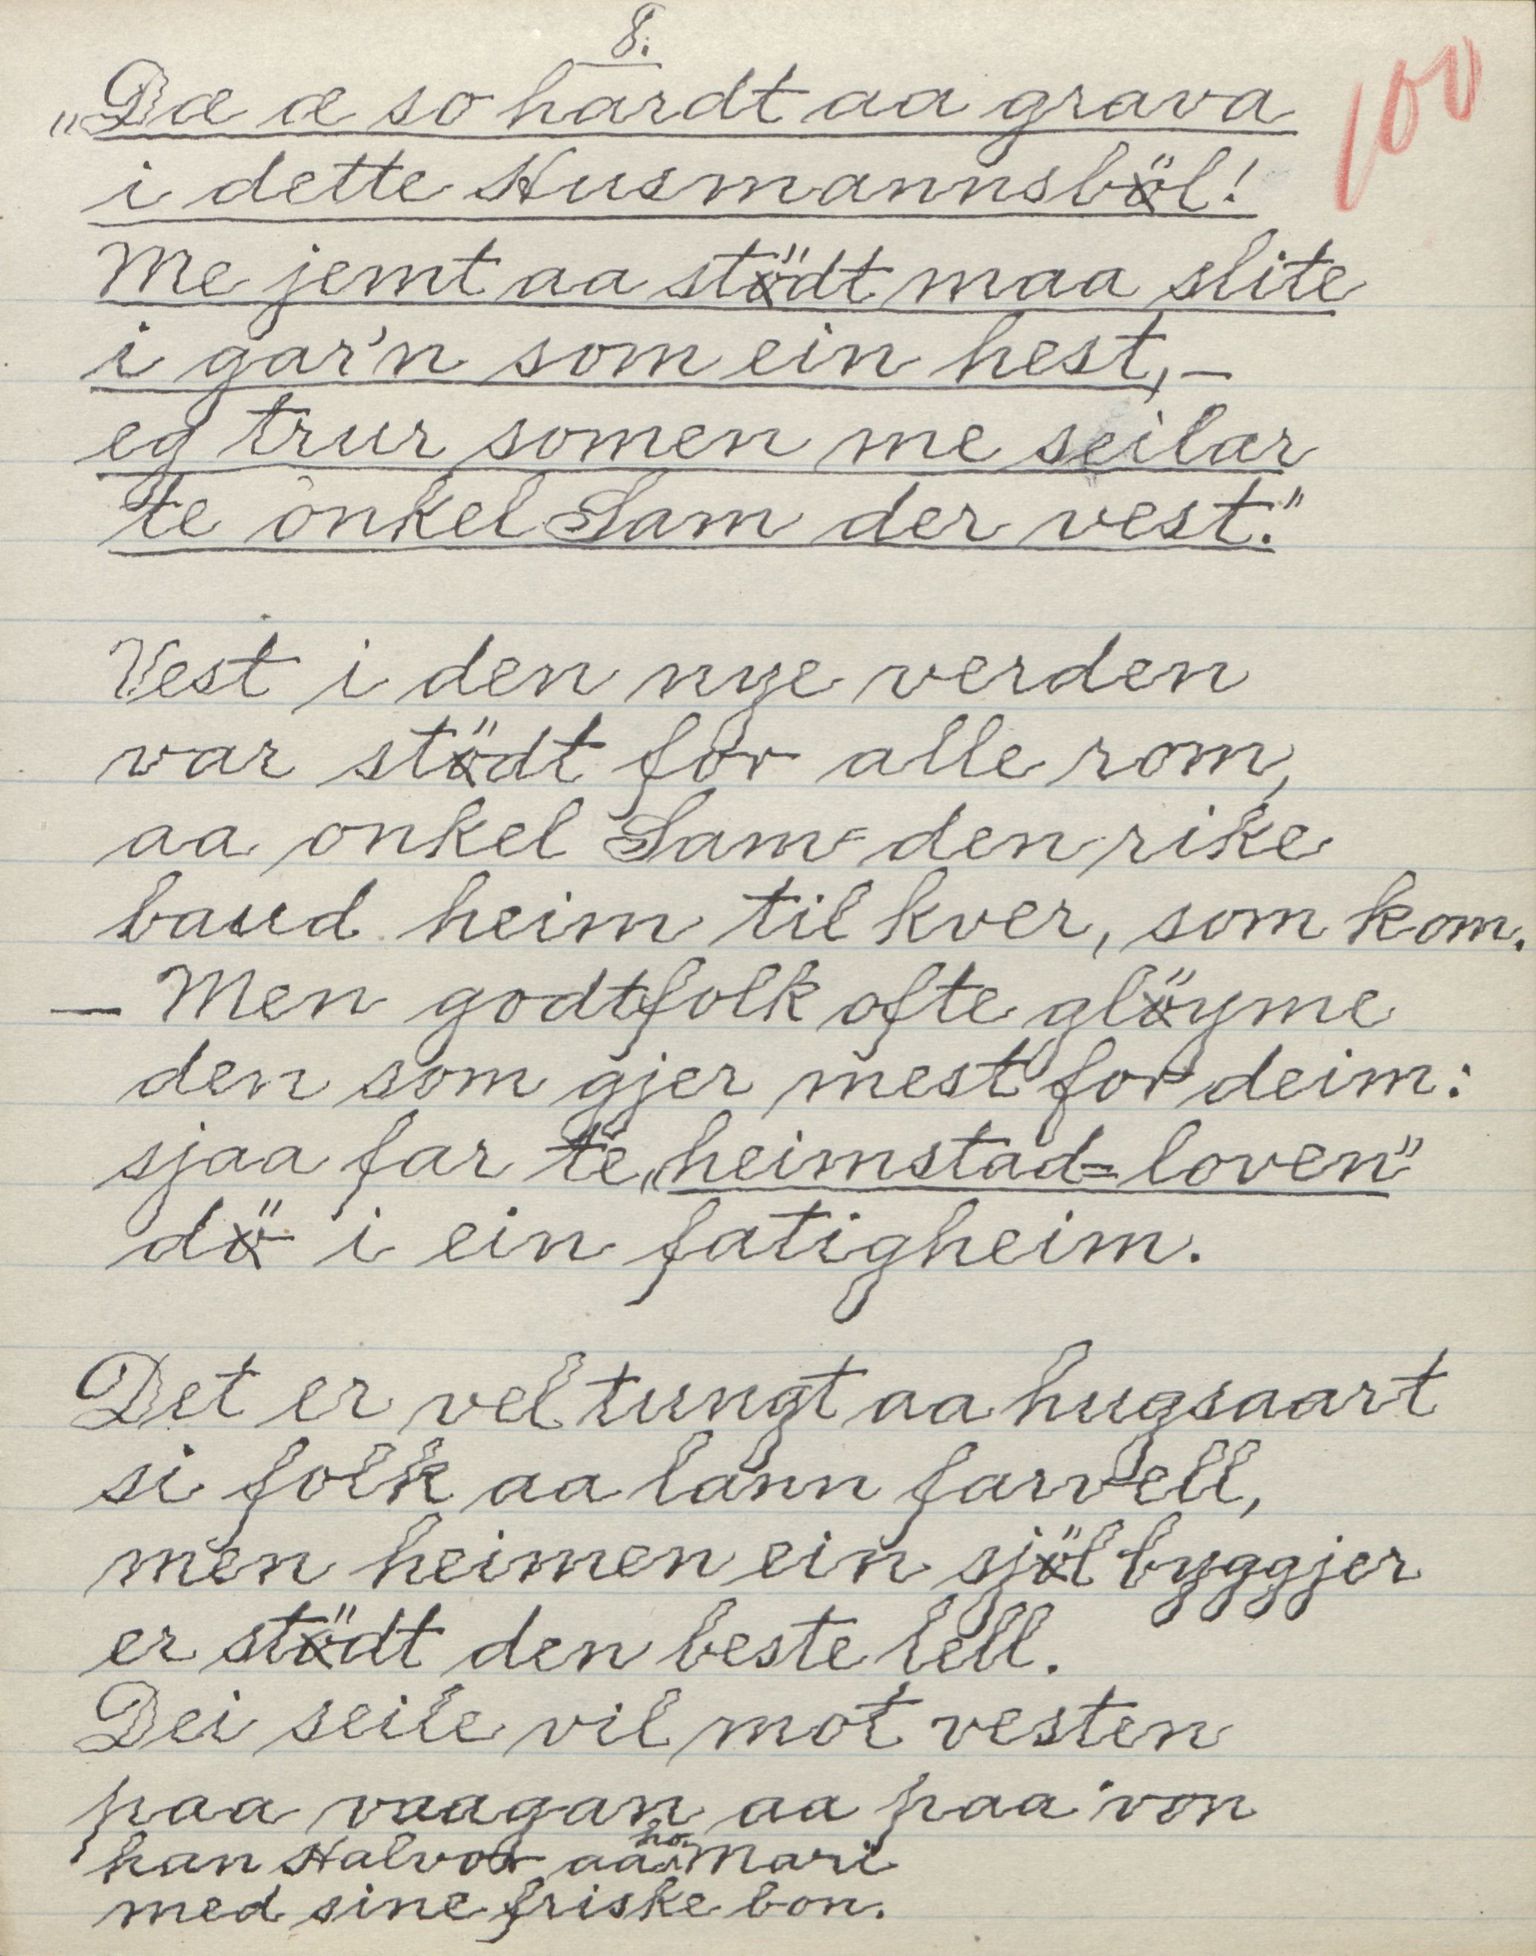 8.
100
„Dæ æ so hardt aa grava
i dette Husmannsböl!
Me jemt aa stödt maa slite
i gar'n som ein hest, –
eg trur somen me seilar
te onkel Sam der vest."
Vest i den nye verden
var stödt for alle rom,
aa onkel Sam = den rike
baud heim til kver, som kom.
— Men godtfolk ofte glöyme
den som gjer mest for deim:
sjaa far te „heimstad=loven"
dö i ein fatigheim.
Det er vel tungt aa hugsaart
si folk aa lann farvell,
men heimen ein sjöl byggjer
er stödt den beste lell.
Dei seile vil mot vesten
paa vaagan aa paa von
han Halvor aa ho Mari
med sine friske bon.